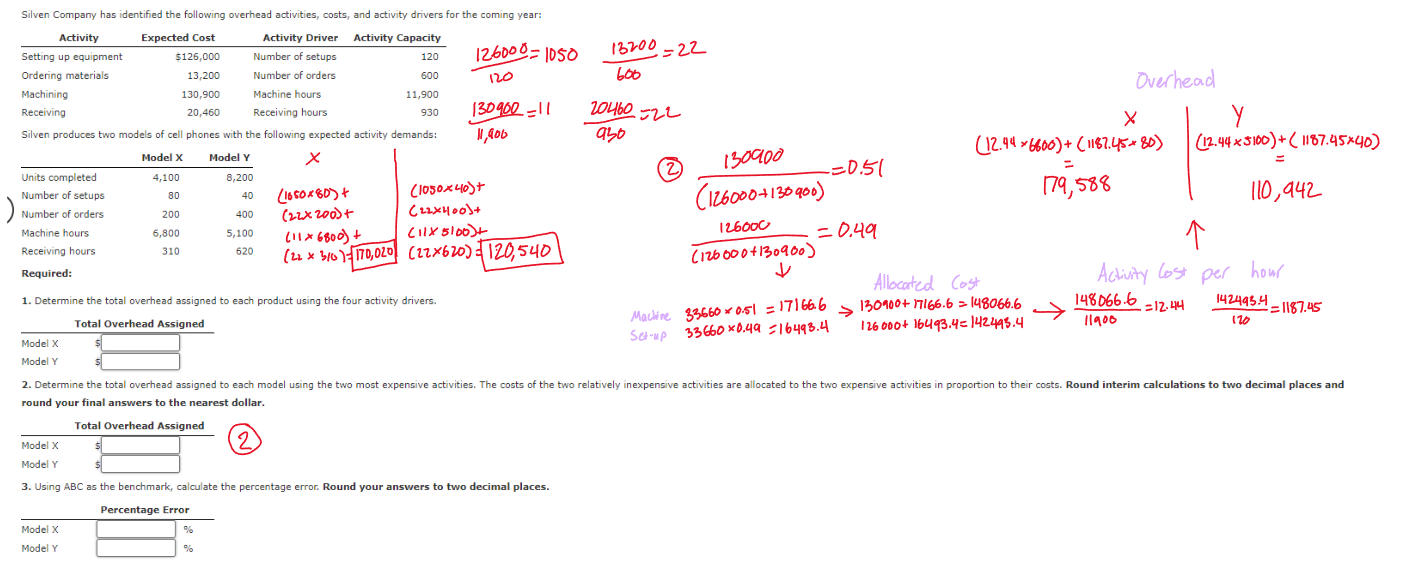 Silven Company has identified the following overhead activities, costs, and activity drivers for the coming year:
Activity Expected Cost Activity Driver Activity Capacity
Setting up equipment $126,000 Number of setups 120
Ordering materials 13,200 Number of orders 600
Machining 130,900 Machine hours 11,900
Receiving 20,460 Receiving hours 930
126000/120 = 1050 13200/600 = 22
130900/11,900 = 11 20460/930 = 22
Silven produces two models of cell phones with the following expected activity demands:
Model X Model Y
Units completed 4,100 8,200
Number of setups 80 40
Number of orders 200 400
Machine hours 6,800 5,100
Receiving hours 310 620
X
(1050x80)+ (1050x40)+
(22x200)+ (22x400)+
(11x6800)+ (11x5100)+
(22x310)=170,020 (22x620)=120,540
2
130900/(126000+130900) = 0.51
126000/(126000+130900) = 0.49
Overhead
X Y
(12.44 x 6800) + (1187.45 x 80) (12.44 x 5100) + (1187.45 x 40)
= =
179,588 110,942
Activity Cost per hour
Allocated Cost
Machine 33660 x 0.51 = 17166.6 → 130900 + 17166.6 = 148066.6 → 148066.6/11900 = 12.44 142493.4/120 = 1187.45
Set-up 33660 x 0.49 = 16493.4 126000 + 16493.4 = 142493.4
Required:
1. Determine the total overhead assigned to each product using the four activity drivers.
Total Overhead Assigned
Model X $
Model Y $
2. Determine the total overhead assigned to each model using the two most expensive activities. The costs of the two relatively inexpensive activities are allocated to the two expensive activities in proportion to their costs. Round interim calculations to two decimal places and
round your final answers to the nearest dollar.
Total Overhead Assigned
2
Model X $
Model Y $
3. Using ABC as the benchmark, calculate the percentage error. Round your answers to two decimal places.
Percentage Error
Model X %
Model Y %